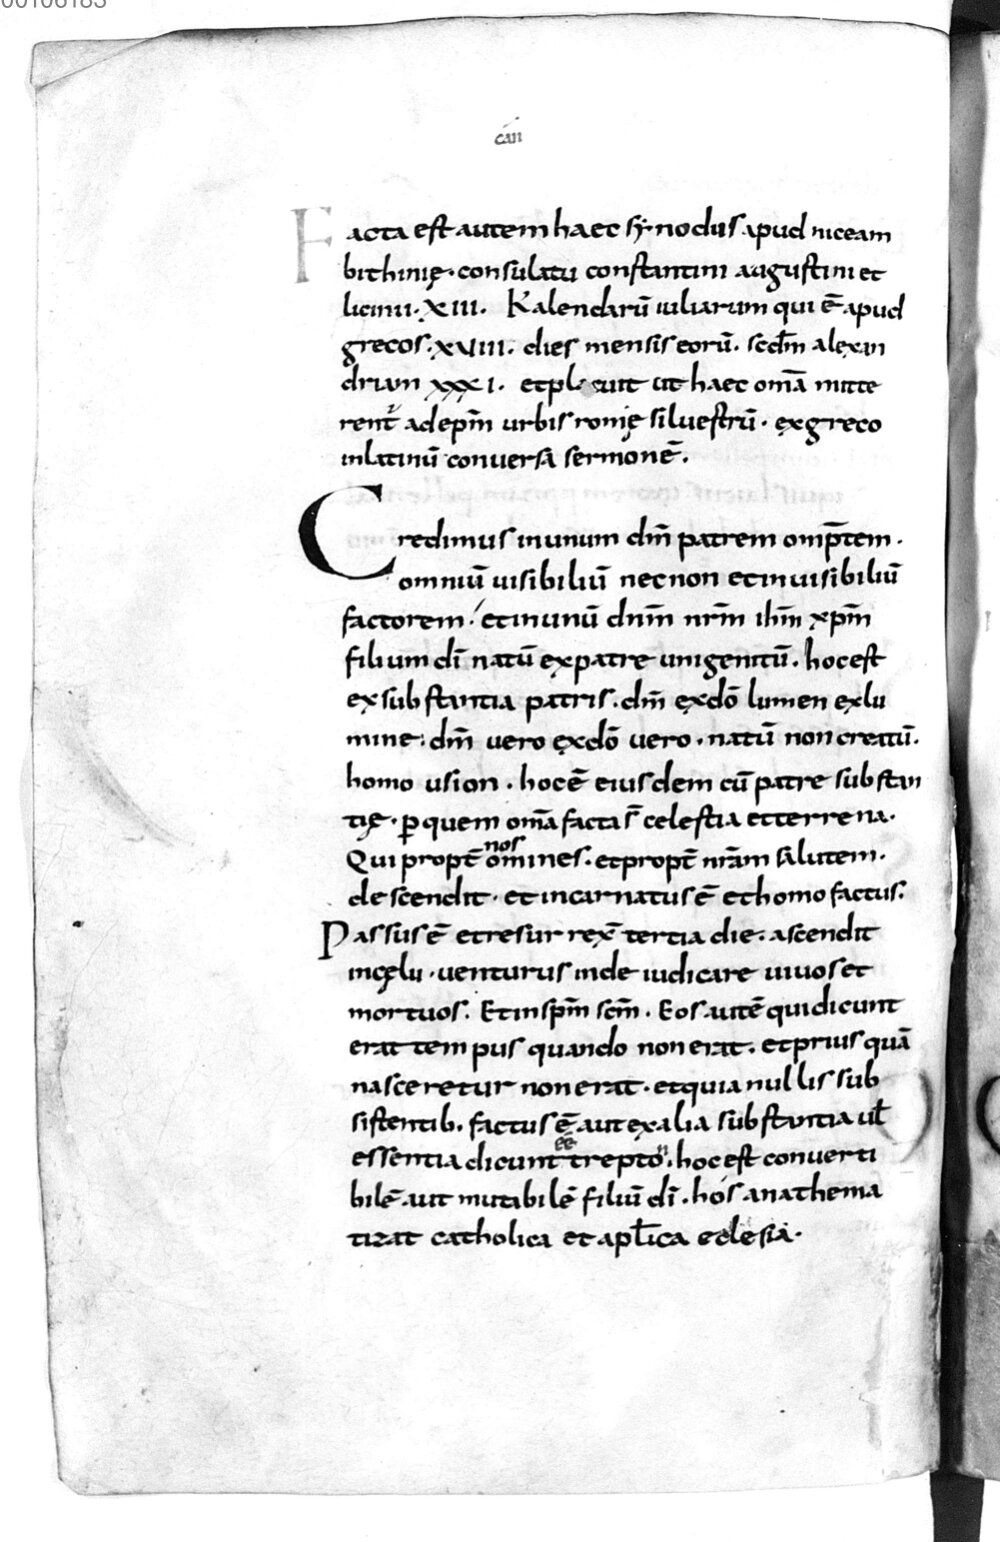 00106183
can
Facta est autem haec synodus apud niceam
bithinię· consulatu constantini augustini et
licinii· XIII· Kalendarū iuliarum qui ē apud
grecos· XVIIII· dies mensis eorū· scdm̄ alexan
driam XXXI· et placuit ut haec omā mitte
rent᷑ ad epm̄ urbis romę siluestrū· ex greco
in latinū conuersā sermonē·
Credimus in unum dm̄ patrem omp̄tem·
omniū uisibiliū necnon et inuisibiliū
factorem· et in unū dnm̄ nrm̄ ihm̄ xpm̄
filium dī natū ex patre unigenitū· hoc est
ex substantia patris· dm̄ ex dō lumen ex lu
mine· dm̄ uero ex dō uero· natū non creatū·
homo usion· hoc ē eiusdem cū patre substan
tię· ꝑ quem omā facta s̄ celestia et terrena·
Qui propt̄ nos omines· et propt̄ nrām salutem·
descendit· et incarnatus ē et homo factus·
Passus ē et resurrex̄ tertia die· ascendit
in cęlu· uenturus inde iudicare uiuos et
mortuos· Et in spm̄ scm̄· Eos autē qui dicunt
erat tempus quando non erat· et prius quā
nasceretur non erat· et quia nullis sub
sistentib· factus ē aut ex alia substantia ul̄
essentia dicunt ee trepton· hoc est conuerti
bilē aut mutabilē filiū dī· hos anathema
tizat catholica et apl̄ica eclesia·